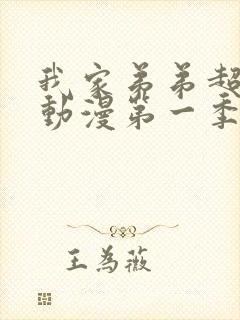 我家弟弟超
動漫第一季
王為薇